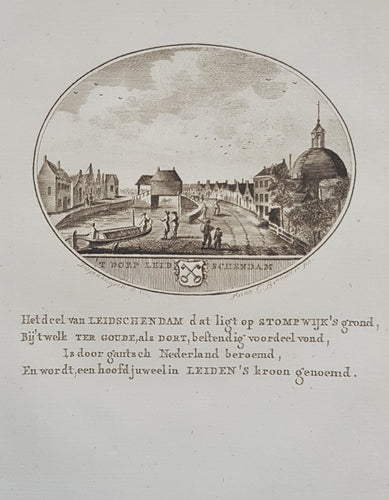 'T DORP LEID SCHENDAM
Het deel van LEIDSCHENDAM dat ligt op STOMPWIJK'S grond,
Bij 't welk TER GOUDE, als DORT, bestendig voordeel vond,
Is door gantsch Nederland beroemd,
En wordt, een hoofdjuweel in LEIDEN'S kroon genoemd.